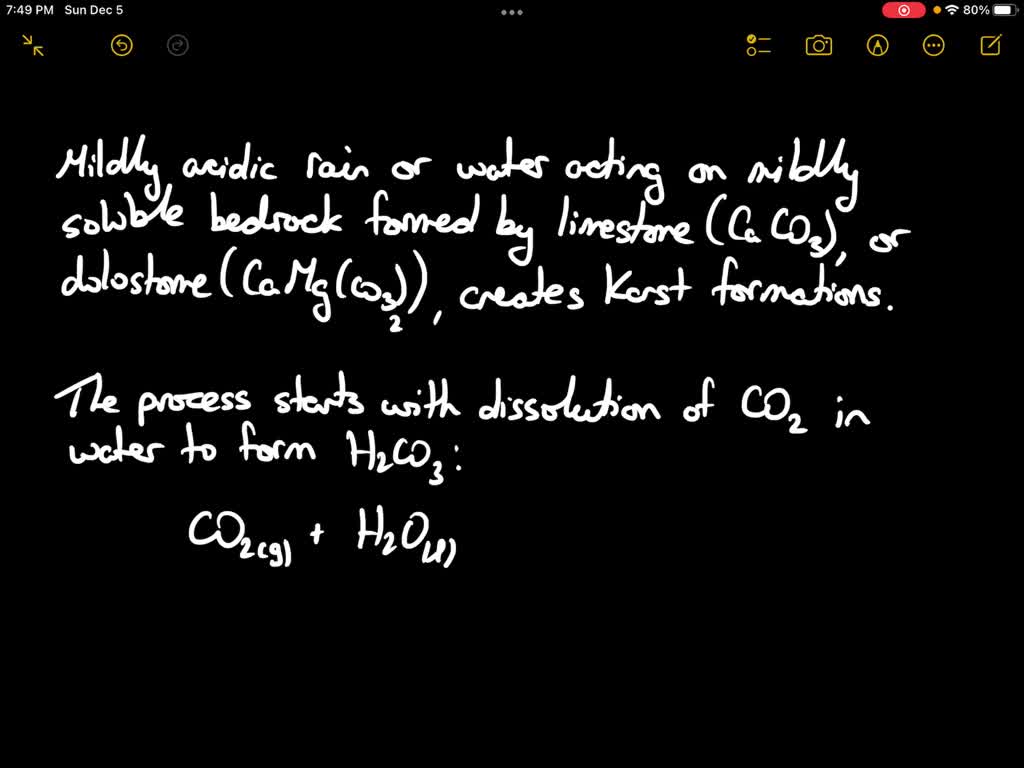 7:49 PM Sun Dec 5
80%
Mildly acidic rain or water acting on mildly
soluble bedrock formed by limestone (CaCO₃), or
dolostone (CaMg(CO₃)₂), creates Karst formations.
The process starts with dissolution of CO₂ in
water to form H₂CO₃:
CO₂(g) + H₂O(l)